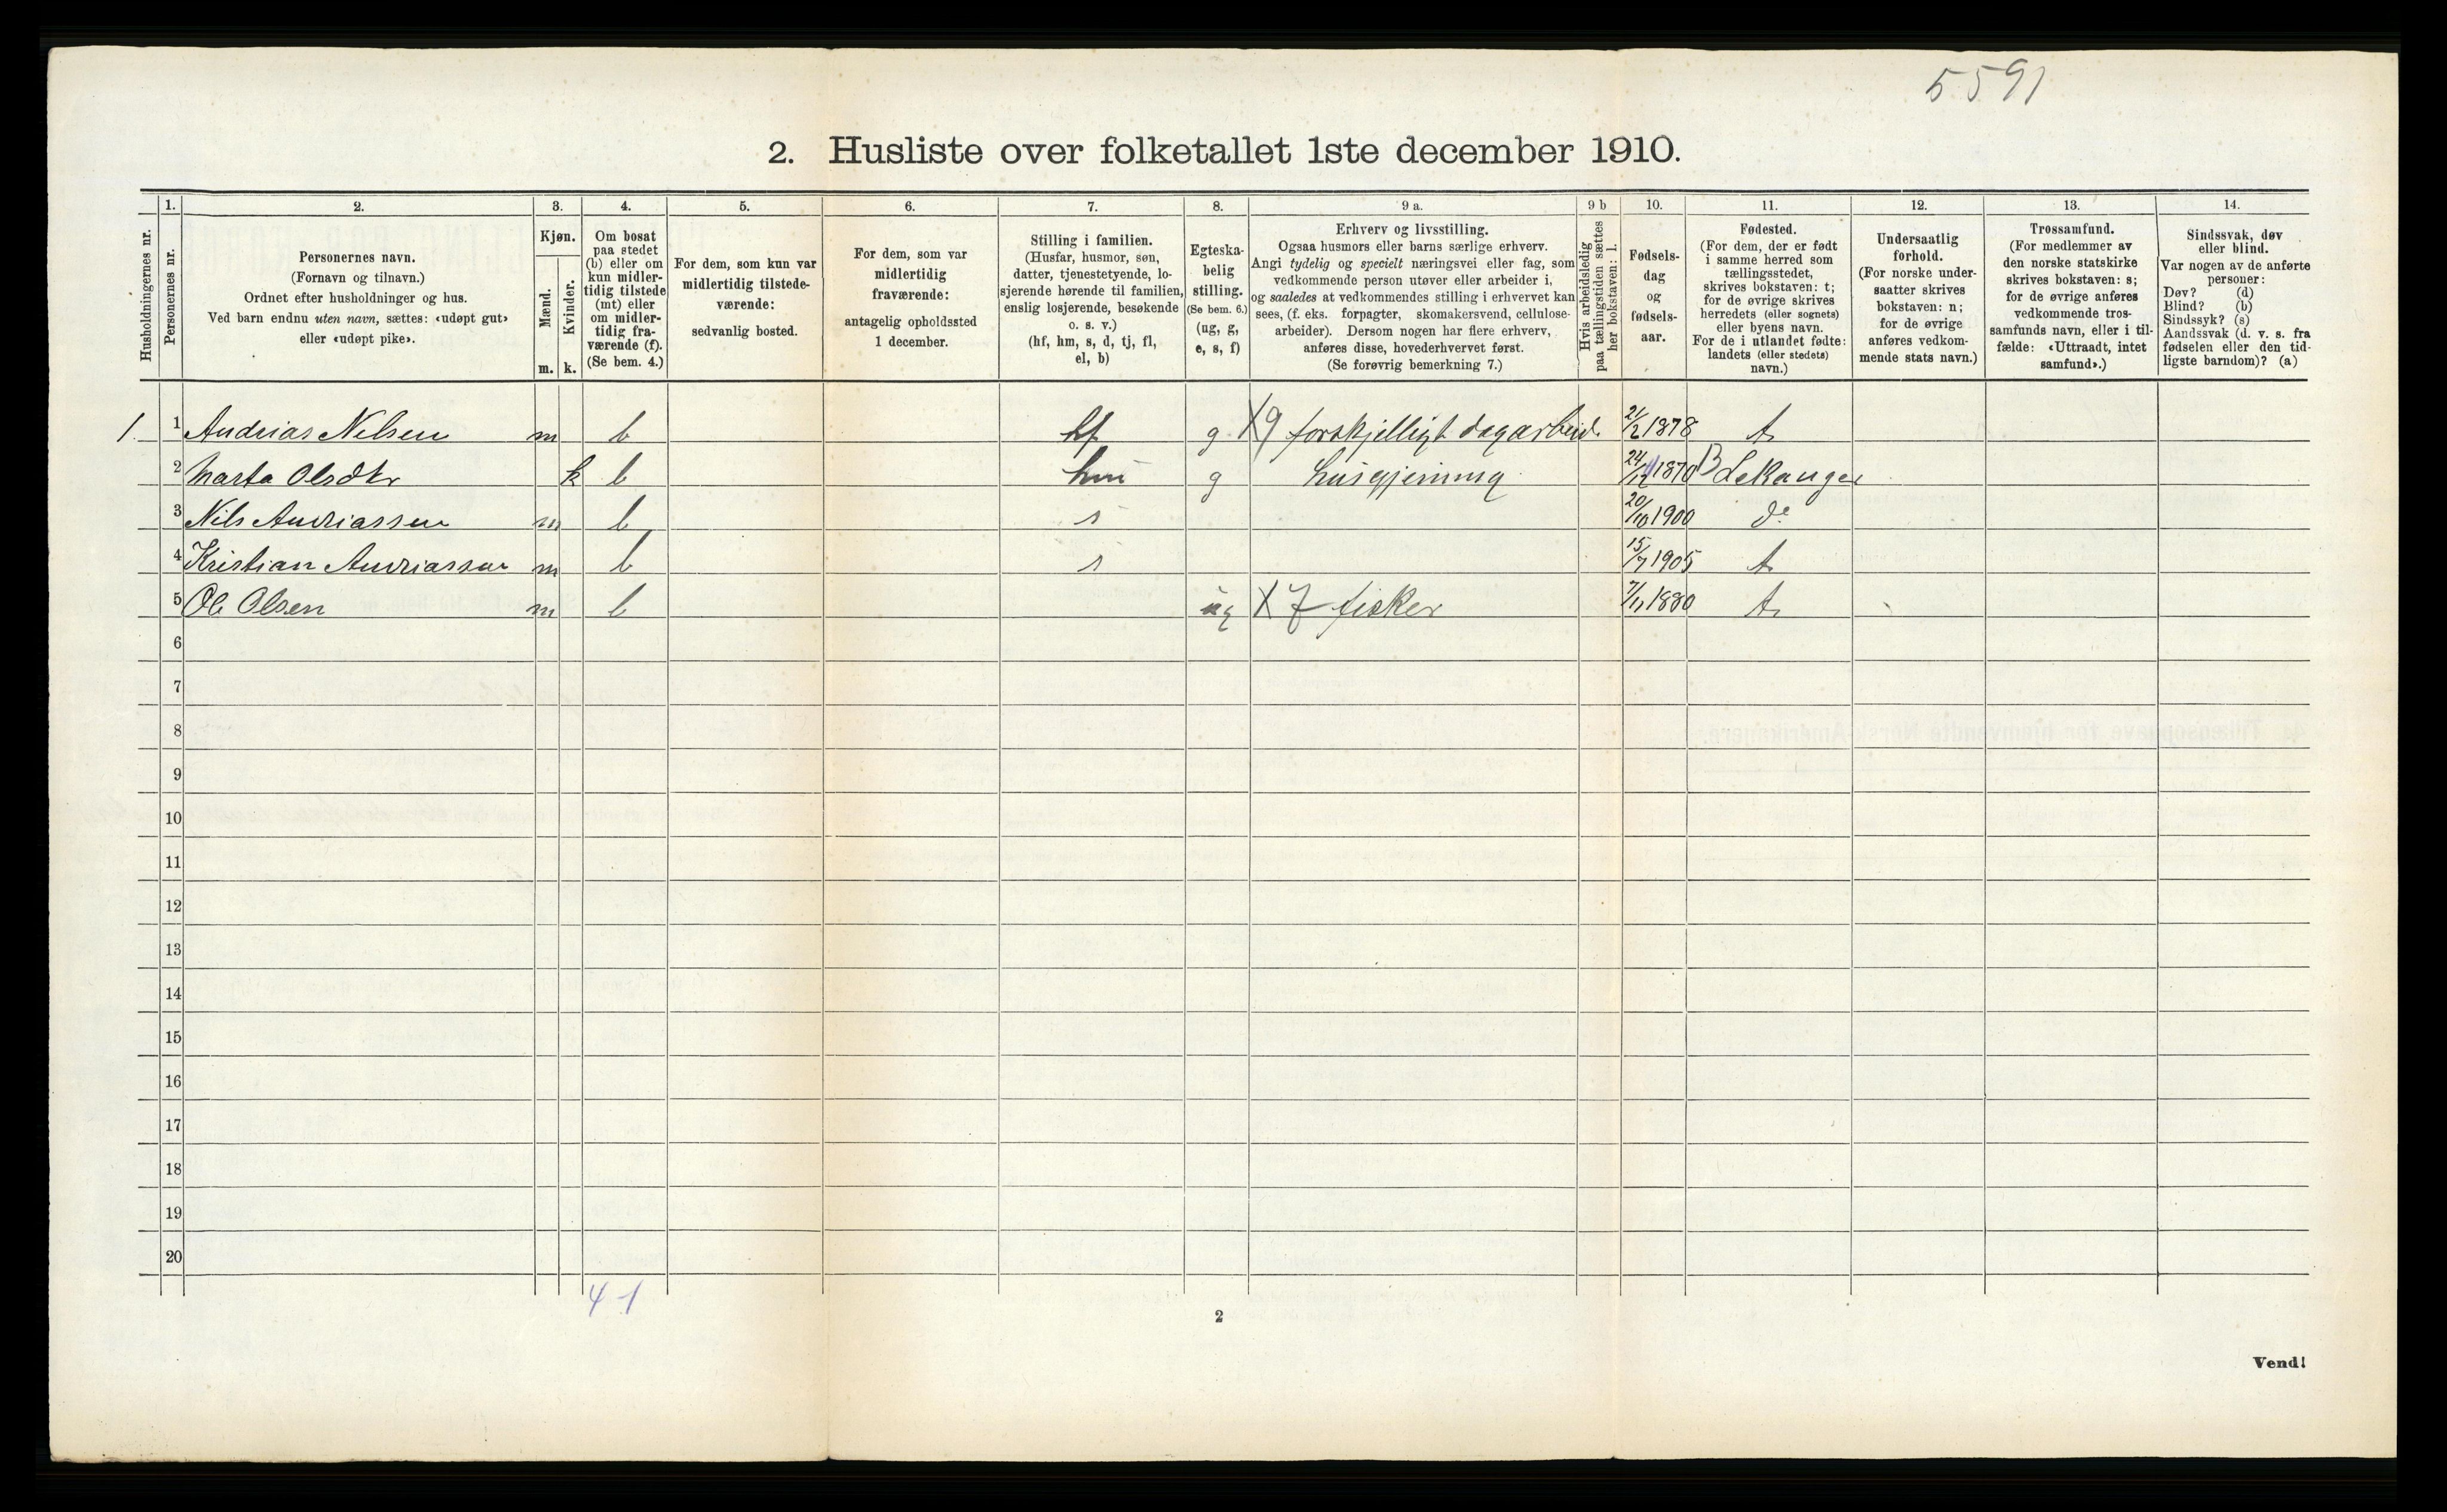 5591
2. Husliste over folketallet 1ste december 1910.
Husholdningernes nr.
1.
Personernes nr.
2.
Personernes navn.
(Fornavn og tilnavn.)
Ordnet efter husholdninger og hus.
Ved barn endnu uten navn, sættes: «udøpt gut»
eller «udøpt pike».
3.
Kjøn.
Mænd.
Kvinder.
m. k.
4.
Om bosat
paa stedet
(b) eller om
kun midler-
tidig tilstede
(mt) eller
om midler-
tidig fra-
værende (f).
(Se bem. 4.)
5.
For dem, som kun var
midlertidig tilstede-
værende:
sedvanlig bosted.
6.
For dem, som var
midlertidig
fraværende:
antagelig opholdssted
1 december.
7.
Stilling i familien.
(Husfar, husmor, søn,
datter, tjenestetyende, lo-
sjerende hørende til familien,
enslig losjerende, besøkende
o. s. v.)
(hf, hm, s, d, tj, fl,
el, b)
8.
Egteska-
belig
stilling.
(Se bem. 6.)
(ug, g,
e, s, f)
9 a.
Erhverv og livsstilling.
Ogsaa husmors eller barns særlige erhverv.
Angi tydelig og specielt næringsvei eller fag, som
vedkommende person utøver eller arbeider i,
og saaledes at vedkommendes stilling i erhvervet kan
sees, (f. eks. forpagter, skomakersvend, cellulose-
arbeider). Dersom nogen har flere erhverv,
anføres disse, hovederhvervet først.
(Se forøvrig bemerkning 7.)
9 b
Hvis arbeidsledig
paa tællingstiden sættes
her bokstaven: l.
10.
Fødsels-
dag
og
fødsels-
aar.
11.
Fødested.
(For dem, der er født
i samme herred som
tællingsstedet,
skrives bokstaven: t;
for de øvrige skrives
herredets (eller sognets)
eller byens navn.
For de i utlandet fødte:
landets (eller stedets)
navn.)
12.
Undersaatlig
forhold.
(For norske under-
saatter skrives
bokstaven: n;
for de øvrige
anføres vedkom-
mende stats navn.)
13.
Trossamfund.
(For medlemmer av
den norske statskirke
skrives bokstaven: s;
for de øvrige anføres
vedkommende tros-
samfunds navn, eller i til-
fælde: «Uttraadt, intet
samfund».)
14.
Sindssvak, døv
eller blind.
Var nogen av de anførte
personer:
Døv? (d)
Blind? (b)
Sindssyk? (s)
Aandssvak (d. v. s. fra
fødselen eller den tid-
ligste barndom)? (a)
1. 1 Andrias Nelsen m b hf g X9 forskjelligt dagarbeid. 21/2 1878 t
2 Marta Olsdtr k b hm g husgjerning 24/12 1870 B Lekanger
3 Nils Andriassen m b s 20/10 1900 do
4 Kristian Andriassen m b s 15/7 1905 t
5 Ole Olsen m b ug X7 fisker 7/11 1880 t
6
7
8
9
10
11
12
13
14
15
16
17
18
19
20
4-1
2
Vend!